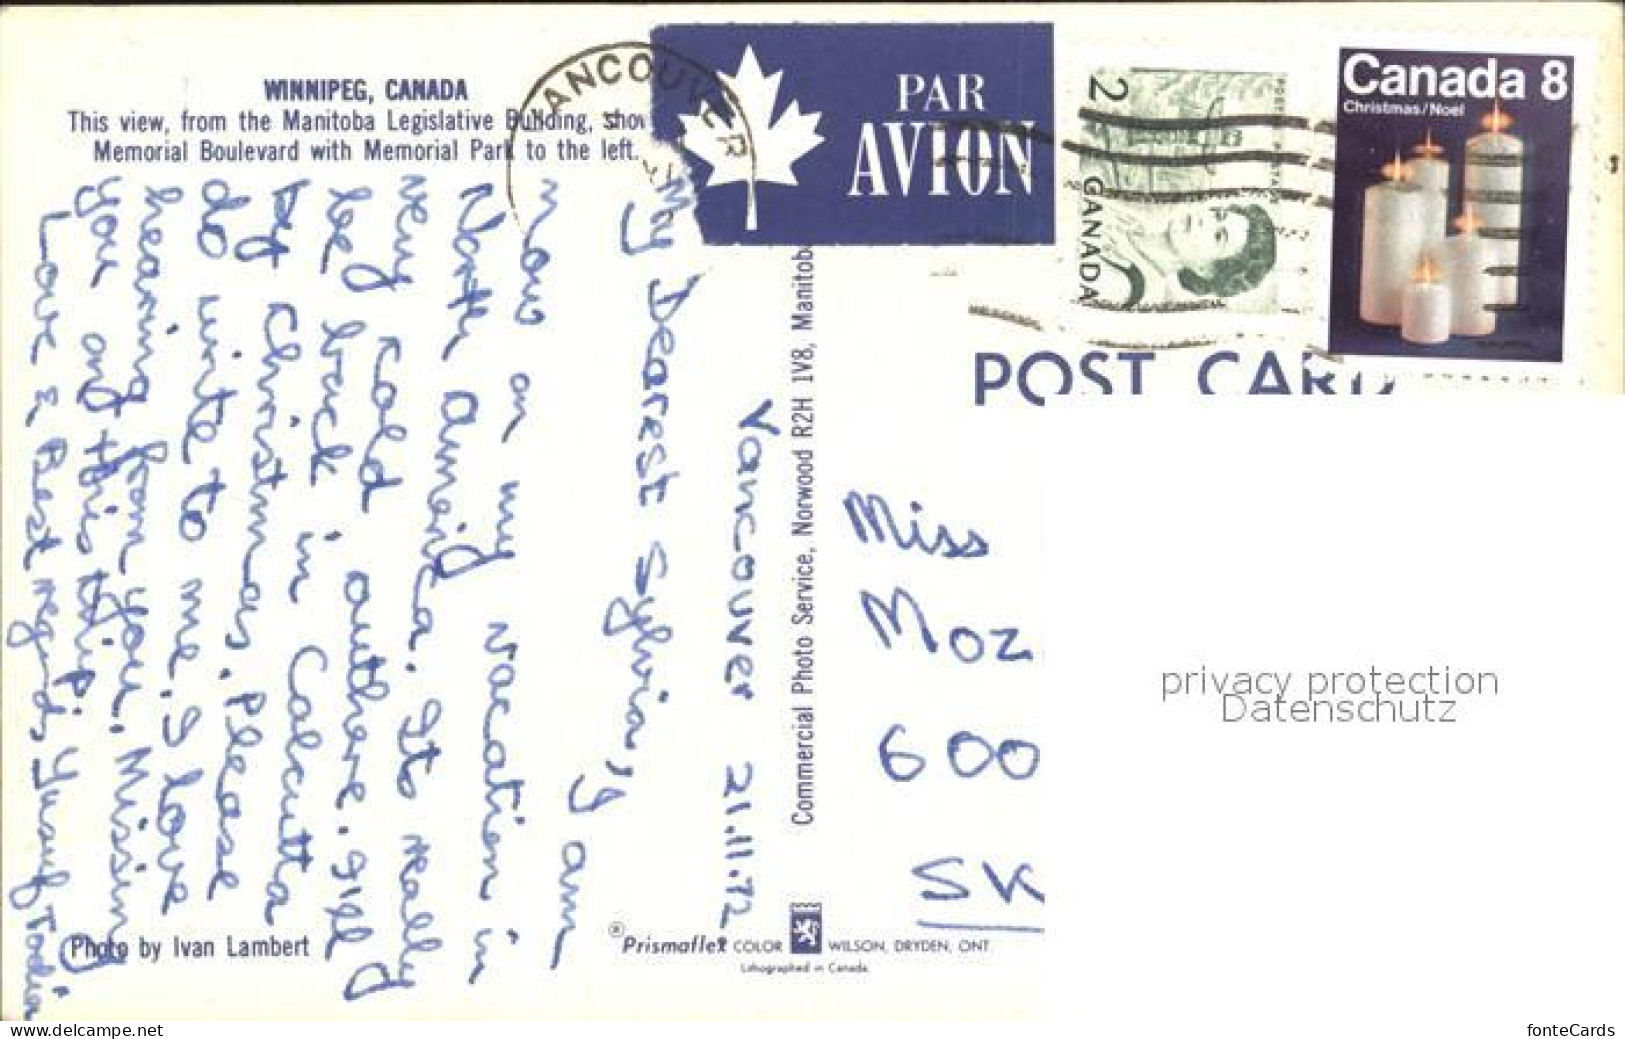 WINNIPEG, CANADA
This view, from the Manitoba Legislative Building, show
Memorial Boulevard with Memorial Park to the left.
VANCOUVER
PAR
AVION
2
CANADA
POSTES POSTAGE
Canada 8
Christmas/Noël
POST CARD
Vancouver 21.11.72
My Dearest Sylvia, I am
now on my vacation in
North America. Its really
very Kold outhere. I'll
be back in Calcutta
by Christmas. Please
do write to me. I love
hearing from you. Missing
you and this trip.
Love & Best regards, Yusuf
Commercial Photo Service, Norwood R2H 1V8, Manitob
Miss
Moz
600
SK
Photo by Ivan Lambert
® Prismaflex COLOR WILSON, DRYDEN, ONT
Lithographed in Canada.
privacy protection
Datenschutz
www.delcampe.net
fonteCards